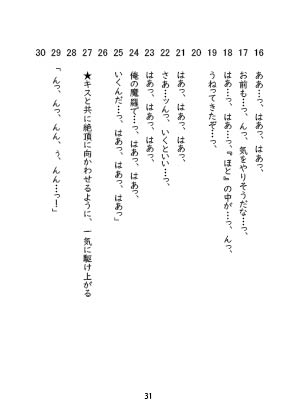 16 ああ…っ、はあっ、はあっ、
17 お前も…っ、んっ、気をやりそうだな…っ、
18 はあ…っ、はあ…っ、『ほと』の中が…っ、んっ、
19 うねってきたぞ…っ、
20
21 はあっ、はあっ、はあっ、
22 さあ…ッんっ、いくといい…っ、
23 はあっ、はあっ、はあっ、
24 俺の魔羅で…っ、はあっ、はあっ、
25 いくんだ…っ、はあっ、はあっ、はあっ」
26
27 ★キスと共に絶頂に向かわせるように、一気に駆け上がる
28
29 「んっ、んっ、んん、ぅ、んん…っ！」
30
31